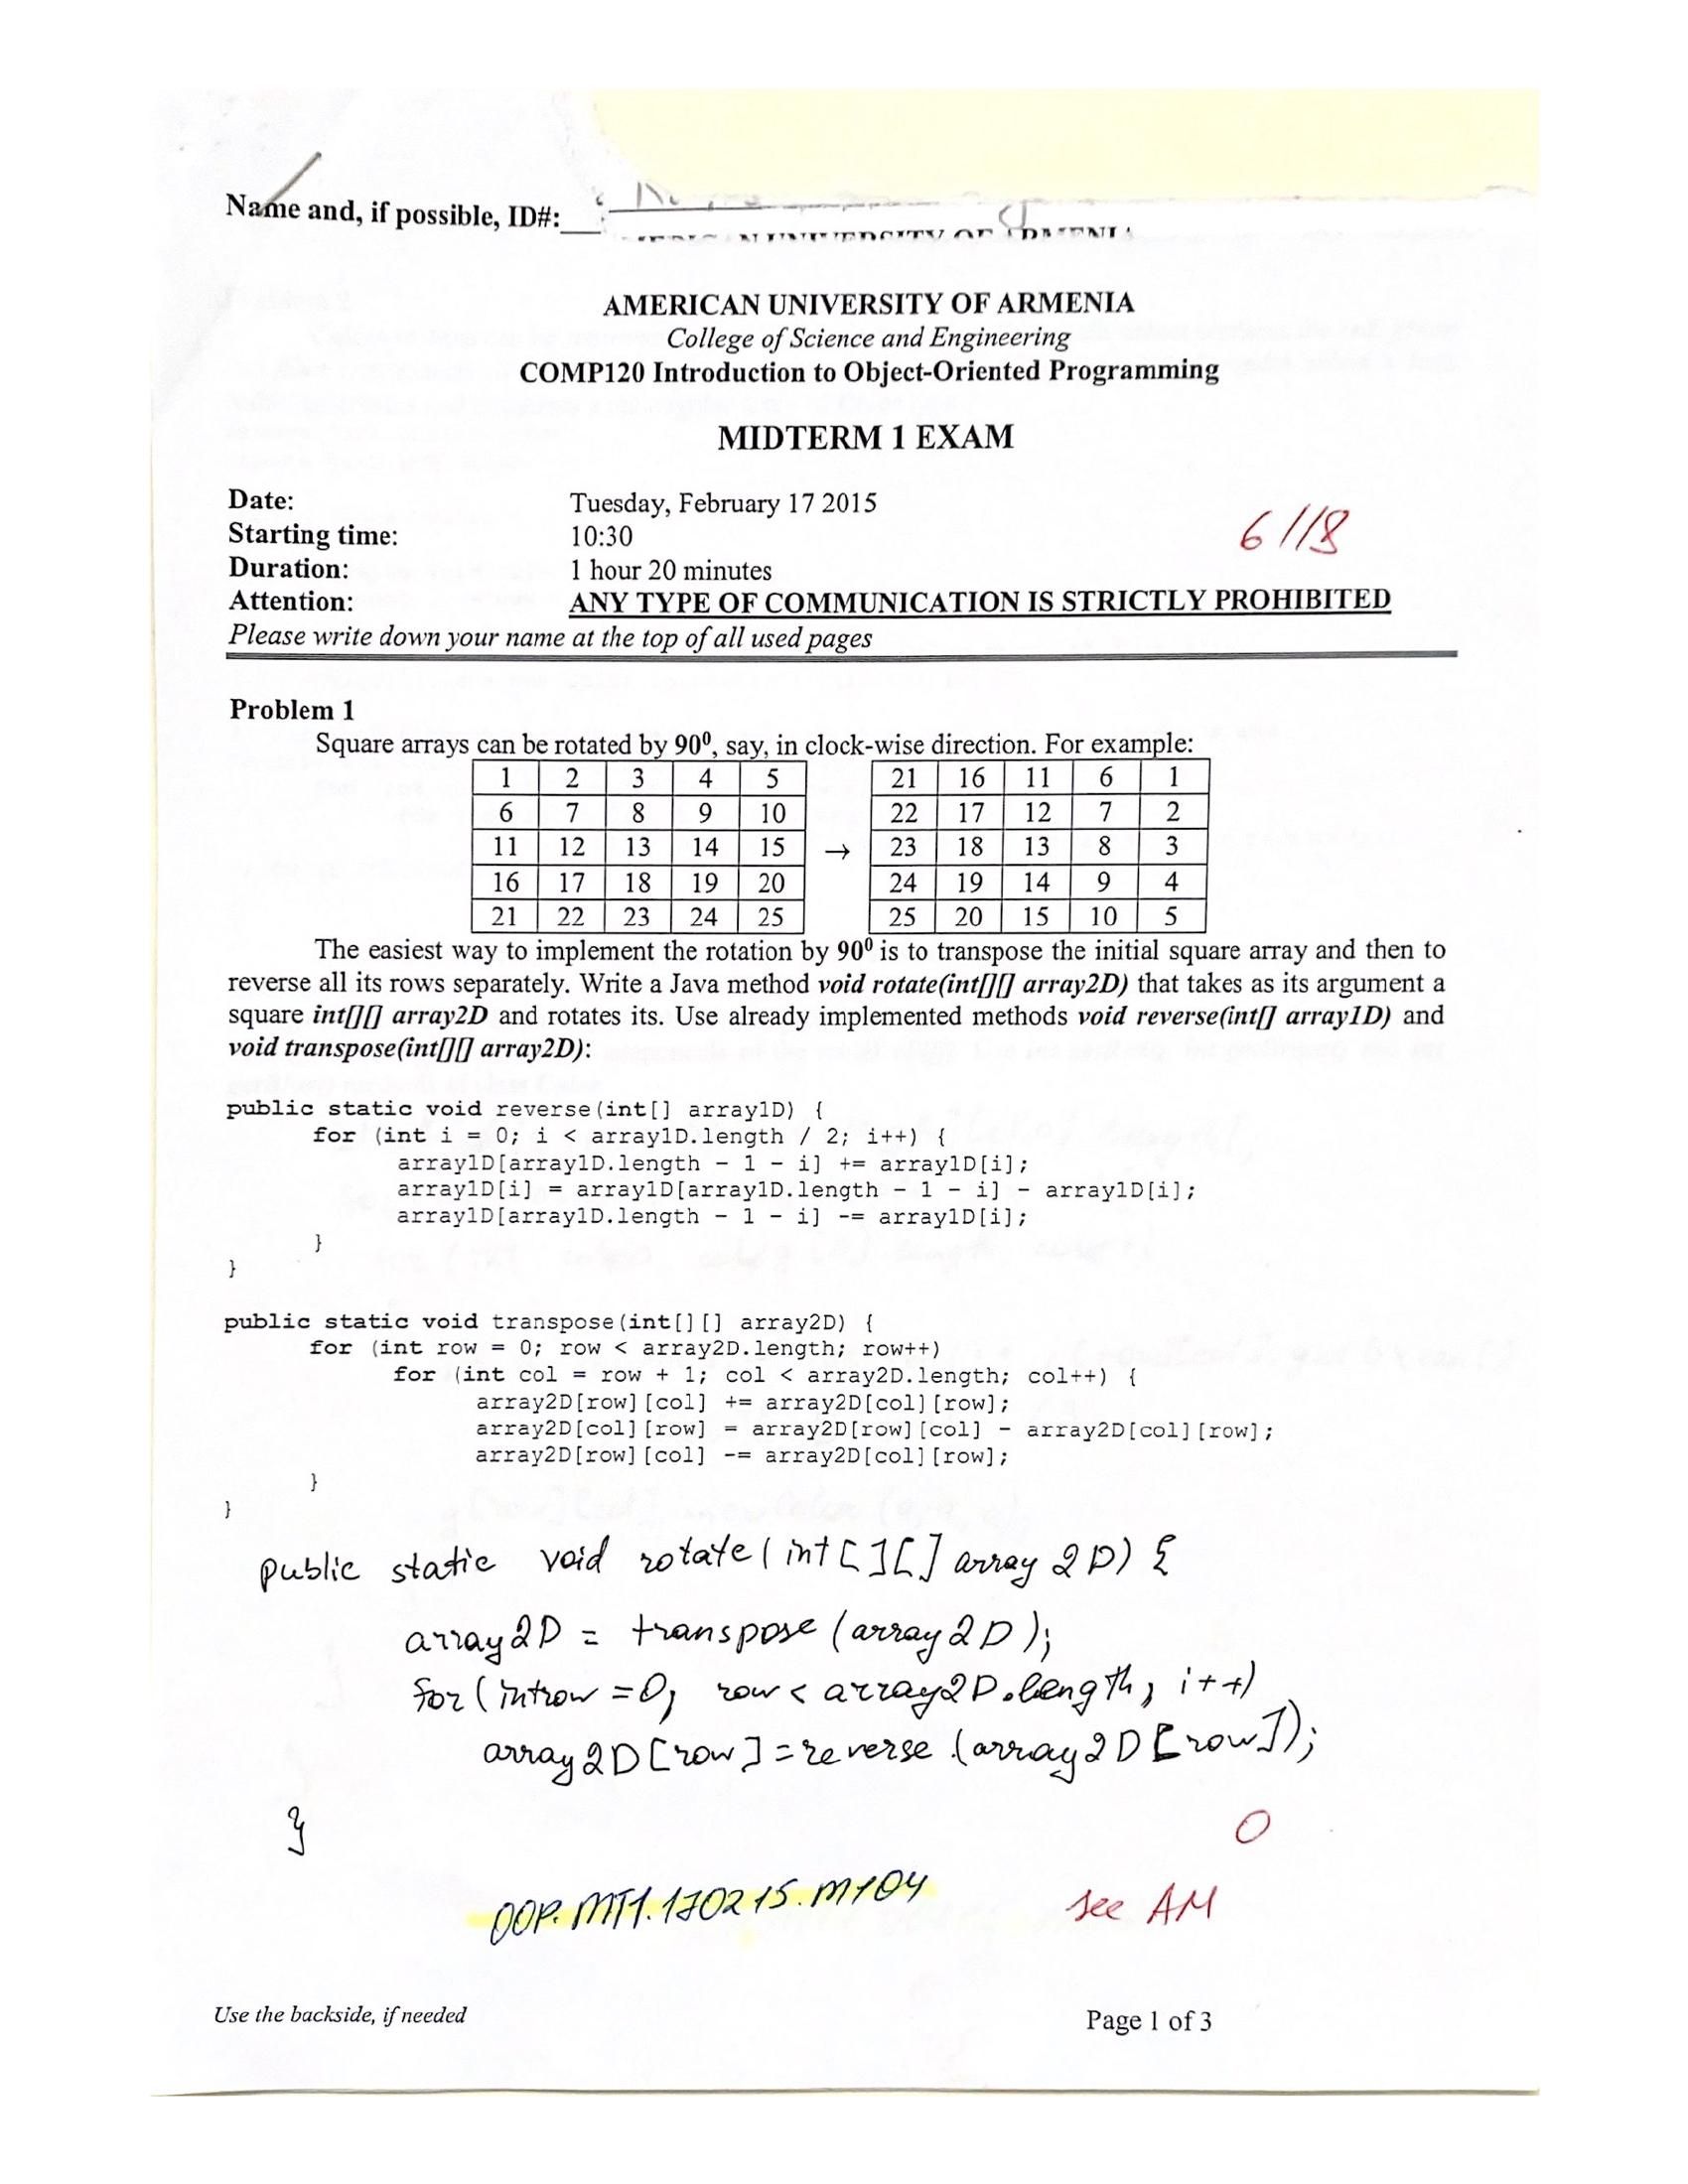 Name and, if possible, ID#:
AMERICAN UNIVERSITY OF ARMENIA
College of Science and Engineering
COMP120 Introduction to Object-Oriented Programming
MIDTERM 1 EXAM
Date: Tuesday, February 17 2015
Starting time: 10:30
6/18
Duration: 1 hour 20 minutes
Attention: ANY TYPE OF COMMUNICATION IS STRICTLY PROHIBITED
Please write down your name at the top of all used pages
Problem 1
Square arrays can be rotated by 90⁰, say, in clock-wise direction. For example:
1 2 3 4 5 21 16 11 6 1
6 7 8 9 10 22 17 12 7 2
11 12 13 14 15 → 23 18 13 8 3
16 17 18 19 20 24 19 14 9 4
21 22 23 24 25 25 20 15 10 5
The easiest way to implement the rotation by 90⁰ is to transpose the initial square array and then to
reverse all its rows separately. Write a Java method void rotate(int[][] array2D) that takes as its argument a
square int[][] array2D and rotates its. Use already implemented methods void reverse(int[] array1D) and
void transpose(int[][] array2D):
public static void reverse(int[] array1D) {
for (int i = 0; i < array1D.length / 2; i++) {
array1D[array1D.length - 1 - i] += array1D[i];
array1D[i] = array1D[array1D.length - 1 - i] - array1D[i];
array1D[array1D.length - 1 - i] -= array1D[i];
}
}
public static void transpose(int[][] array2D) {
for (int row = 0; row < array2D.length; row++)
for (int col = row + 1; col < array2D.length; col++) {
array2D[row][col] += array2D[col][row];
array2D[col][row] = array2D[row][col] - array2D[col][row];
array2D[row][col] -= array2D[col][row];
}
}
public static void rotate(int[][] array2D) {
array2D = transpose(array2D);
for(introw =0; row < array2D.length; i++)
array2D[row]=reverse(array2D[row]);
}
0
OOP.MT1.170215.M104
see AM
Use the backside, if needed
Page 1 of 3